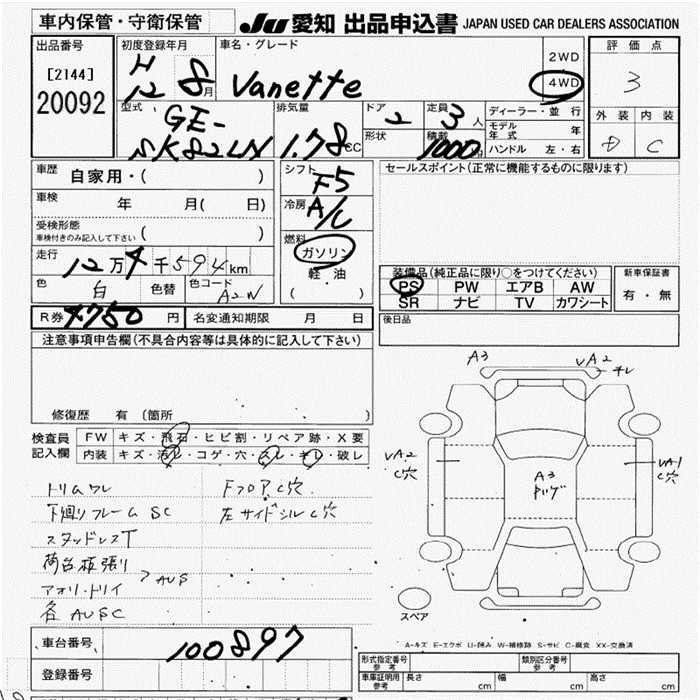 車内保管・守衛保管
JU 愛知 出品申込書 JAPAN USED CAR DEALERS ASSOCIATION
出品番号 [2144] 20092
初度登録年月 H 12 8月
車名・グレード Vanette
2WD
4WD
評価点 3
外装 内装
D C
型式 GE-SK82LN
排気量 1.78 CC
ドア 2
形状
定員 3人
積載 1000
ディーラー・並行
モデル年式 年
ハンドル 左・右
車歴 自家用・( )
車検 年 月( 日)
受検形態
車検付きのみ記入して下さい ( )
走行 12万4千594km
色 白 色替 色コード A2W
シフト F5
冷房 A/C
燃料 ガソリン
軽・油
( )
セールスポイント(正常に機能するものに限ります)
装備品(純正品に限り○をつけてください)
PS PW エアB AW
SR ナビ TV カワシート
新車保証書
有・無
R券 4750円 名変通知期限 月 日
後日品
注意事項申告欄(不具合内容等は具体的に記入して下さい)
修復歴 有 (箇所
検査員記入欄
FW キズ・飛石・ヒビ割・リペア跡・X要
内装 キズ・汚レ・コゲ・穴・スレ・キレ・破レ
トリムワレ
下廻りフレームSC
スタッドレスT
荷台板張り
アオリ・トリイ > AUS
各AUSC
フロアC穴
左サイドシルC穴
A3
VA2
キレ
VA2
C穴
A3
VA1
C穴
スペア
A-キズ E-エクボ U-凹み W-補修跡 S-サビ C-腐食 XX-交換済
車台番号 100897
登録番号
形式指定番号 参考
類別区分番号 参考
車庫証明用 参考
長さ cm
幅 cm
高さ cm